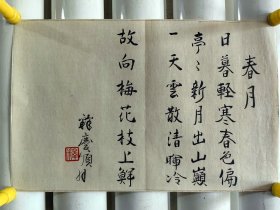 春月
日暮輕寒春色偏
亭〻新月出山巔
一天雲散清暉冷
故向梅花枝上鮮